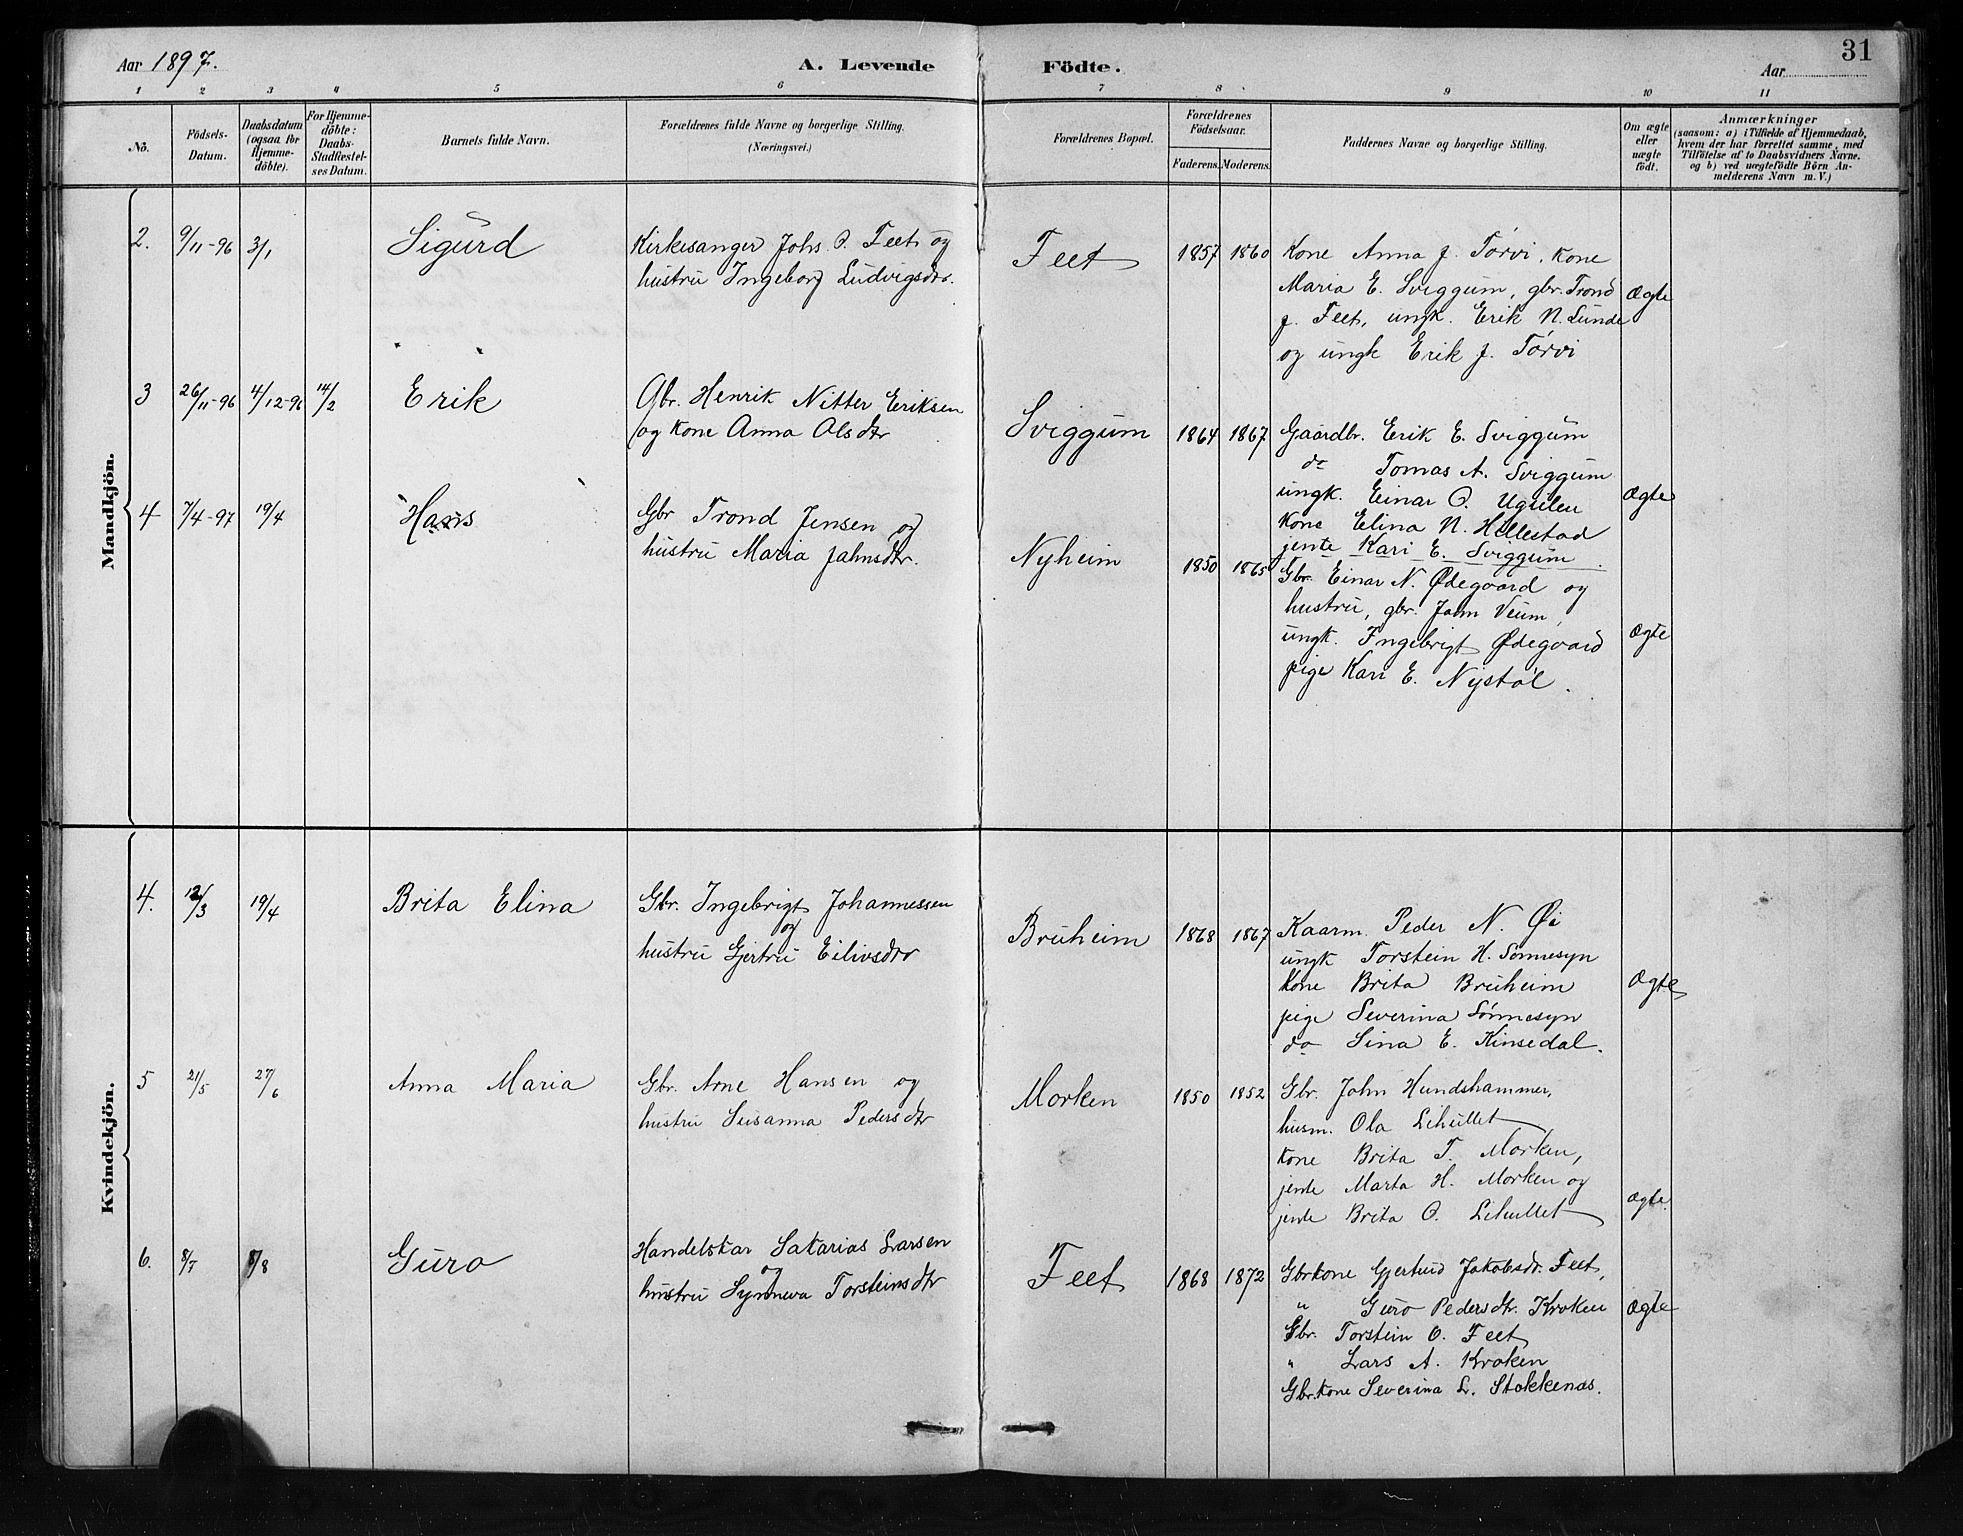 Aar 1897.
A. Levende Födte.
Aar
31
1 2 3 4 5 6 7 8 9 10 11
No.
Födsels-Datum.
Daabsdatum (ogsaa for Hjemme-döbte).
For Hjemme-döbte: Daabs-Stadfæstel-ses Datum.
Barnets fulde Navn.
Forældrenes fulde Navne og borgerlige Stilling.
(Næringsvei.)
Forældrenes Bopæl.
Forældrenes Födselsaar.
Faderens. Moderens.
Faddernes Navne og borgerlige Stilling.
Om ægte eller uægte födt.
Anmærkninger
(saasom: a) i Tilfælde af Hjemmedaab,
hvem der har forrettet samme, med
Tilföielse af to Daabsvidners Navne.
og b) ved uægtefödte Börn An-
melderens Navn m. V.)
Mandkjön.
2. 9/11-96 3/1 Sigurd
Kirkesanger Johs. O. Feet og
hustru Ingeborg Ludvigsdtr.
Feet 1857 1860
Kone Anna J. Törvi, Kone
Maria E. Sviggum, gbr. Trond
J. Feet, ungk. Erik N. Lunde
og ungk Erik J. Törvi
Ægte
3 26/11-96 4/12-96 14/2 Erik
Gbr. Henrik Nitter Eriksen
og Kone Anna Olsdtr
Sviggum 1864 1867
Gaardbr. Erik E. Sviggum
do Tomas A. Sviggum
ungk. Einar O. Ugulen
Kone Elina N. Hillestad
jente Kari E. Sviggum.
Ægte
4 7/4-97 19/4 Hans
Gbr Trond Jensen og
hustru Maria Jahnsdtr.
Nyheim 1850 1865
Gbr. Einar N. Ødegaard og
hustru, gbr. Jahn Veum,
ungk. Ingebrigt Ødegaard
pige Kari E. Nystöl.
Ægte
Kvindekjön.
4. 12/3 19/4 Brita Elina
Gbr. Ingebrigt Johannessen
og
hustru Gjertru Eilivsdtr
Bruheim 1868 1867
Kaarm. Peder N. Øi
ungk Torstein H. Sönnesyn
Kone Brita Bruheim
pige Severina Sönnesyn
do Sina E. Kinsedal.
Ægte
5 21/5 27/6 Anna Maria
Gbr. Arne Hansen og
hustru Susanna Pedersdtr
Morken 1850 1852
Gbr. John Hundshammer,
husm. Ola Lihullet
Kone Brita T. Morken,
jente Marta H. Morken og
jente Brita O. Lihullet
Ægte.
6. 8/7 /8 Guro
Handelskar Sakarias Larsen
og
hustru Synneva Torsteinsdtr
Feet 1868 1872
Gbrkone Gjertrud Jakobsdr. Feet,
" Guro Pedersdtr. Kroken
Gbr. Torstein O. Feet
" Lars A. Kroken
Gbr.kone Severina L. Stokkenæs.
Ægte